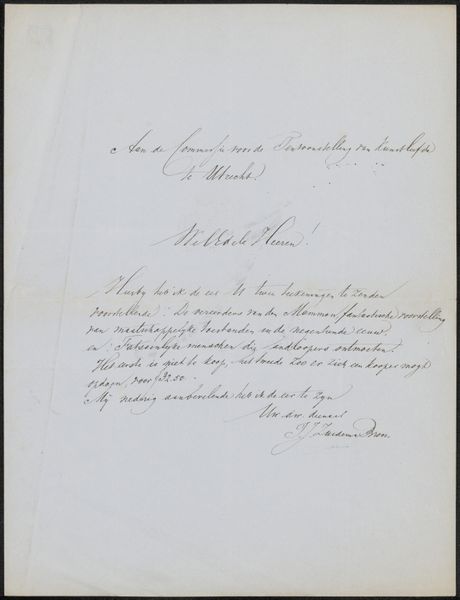 Aan de Commissie voor de Tentoonstelling van Kunstliefde
te Utrecht.
WelEdele Heeren!
Hierbij heb ik de eer U twee teekeningen te zenden
voorstellende: De vereerders van den Mammon, fantastische voorstelling
van maatschappelijke toestanden in de negentiende eeuw,
en: Fatsoenlijke menschen die landloopers ontmoeten.
Het eerste is niet te koop, het tweede zoo er zich een kooper mogt
opdoen, voor
Mij nederig aanbevelende heb ik de eer te zijn
Uw dw. dienaar
Zuidema Broos